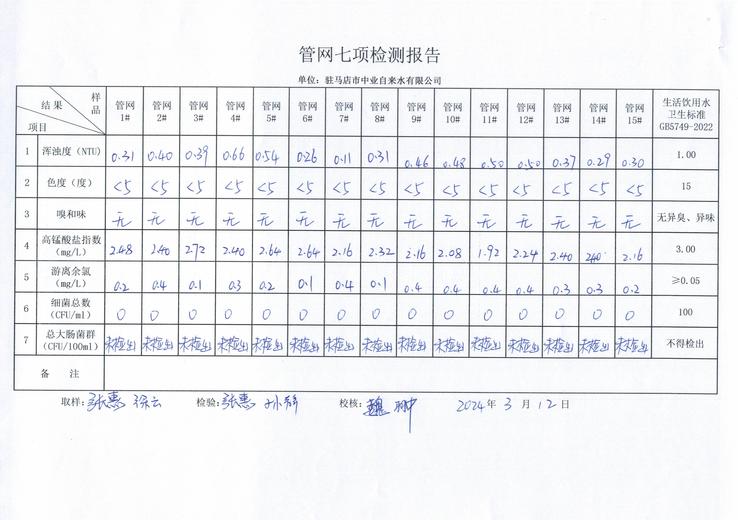 管网七项检测报告
单位：驻马店市中业自来水有限公司
结果 样品 项目 管网1# 管网2# 管网3# 管网4# 管网5# 管网6# 管网7# 管网8# 管网9# 管网10# 管网11# 管网12# 管网13# 管网14# 管网15# 生活饮用水卫生标准GB5749-2022
1 浑浊度（NTU） 0.31 0.40 0.39 0.66 0.54 0.26 0.11 0.31 0.46 0.48 0.50 0.50 0.37 0.29 0.30 1.00
2 色度（度） <5 <5 <5 <5 <5 <5 <5 <5 <5 <5 <5 <5 <5 <5 <5 15
3 嗅和味 无 无 无 无 无 无 无 无 无 无 无 无 无 无 无 无异臭、异味
4 高锰酸盐指数（mg/L） 2.48 2.40 2.72 2.40 2.64 2.64 2.16 2.32 2.16 2.08 1.92 2.24 2.40 240 2.16 3.00
5 游离余氯（mg/L） 0.2 0.4 0.1 0.3 0.2 0.1 0.4 0.1 0.4 0.4 0.4 0.4 0.3 0.3 0.2 ≥0.05
6 细菌总数（CFU/ml） 0 0 0 0 0 0 0 0 0 0 0 0 0 0 0 100
7 总大肠菌群（CFU/100ml） 未检出 未检出 未检出 未检出 未检出 未检出 未检出 未检出 未检出 未检出 未检出 未检出 未检出 未检出 未检出 不得检出
备 注
取样：张惠 徐云 检验：张惠 孙静 校核：魏翀 2024年3月12日